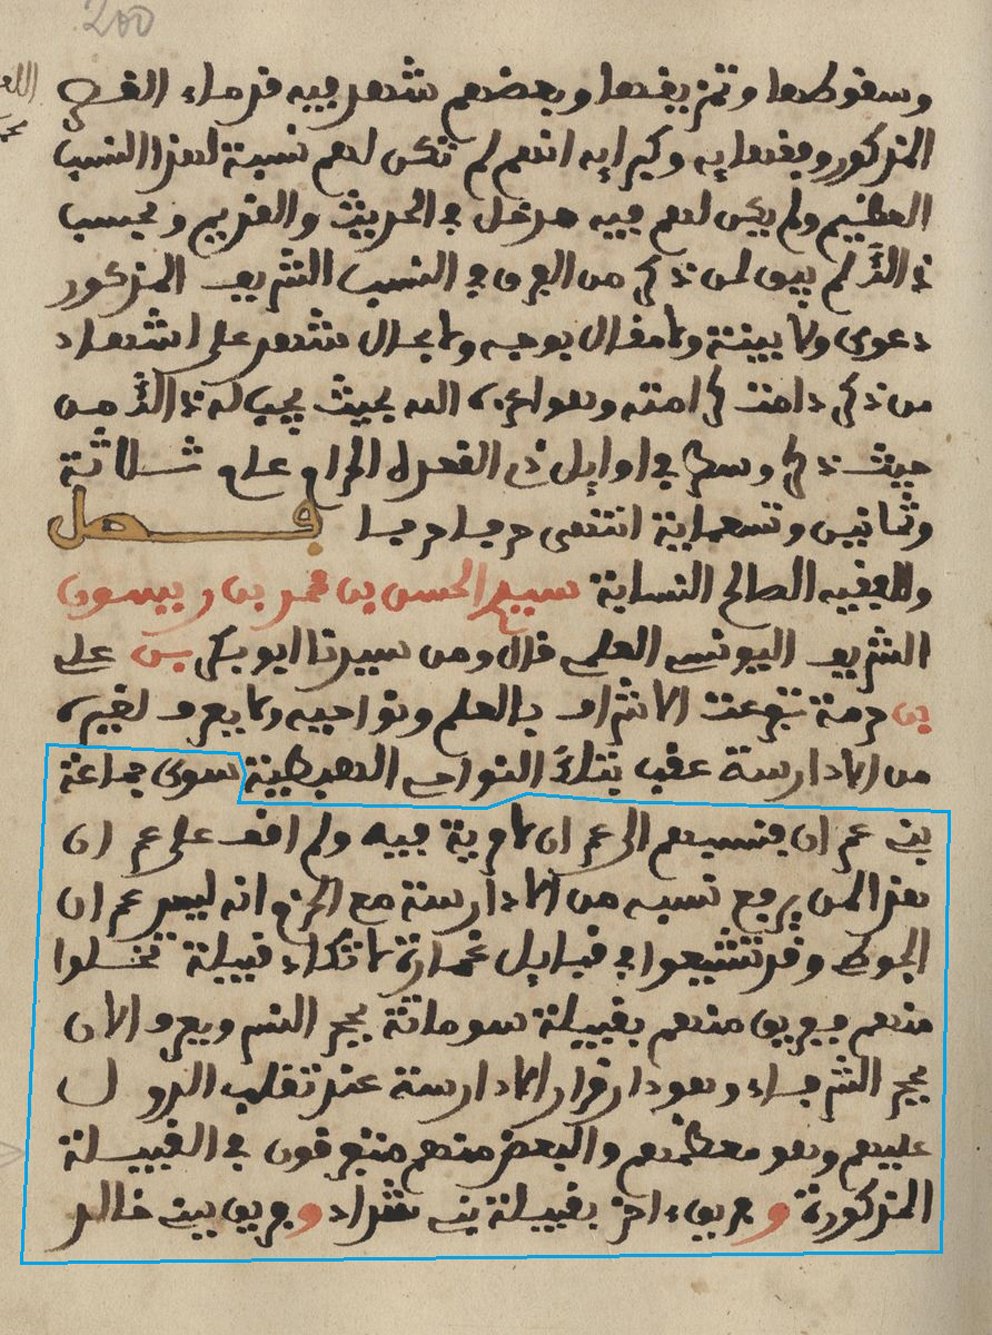 200
وسقوطها وتزييفها وبعضهم شهد فيه قدماء
المذكور وفقهايه وكبرايه انهم لم تكن لهم نسبة لهذا النسب
العظيم ولم يكن لهم فيه مدخل في الحديث والقديم وبحسب
ذالك لم يبق لمن ذكر من الفرق في النسب الشريف المذكور
دعوى ولا بينة ولا مقال بوجه ولا بحال شهد على اشهاد
من ذكر دامت كرامته وهو اعزه الله بحيث يجب له ذالك من
حيث ذكر وسطر في اوايل ذي القعدة الحرام عام ثلاثة
وثمانين وتسعماية انتهى حرفا حرفا فصل
وللفقيه الصالح النسابة سيدي الحسن بن محمد بن ريسون
الشريف اليونسي العلمي قال ومن سيدنا ابو بكر بن علي
بن حرمة تفرعت الاشراف بالعلم ونواحيه ولا يعرف لغيره
من الادارسة عقب بتلك النواحي الهبطية سوى جماعة
بني عمران فنسبهم الى عمران لا مرية فيه ولم اقف على عمران
هذا لمن يرجع نسبه من الادارسة مع الجزم انه ليس عمران
الجوطي وقد تشيعوا في قبايل غمارة لا تكاد قبيلة تخلوا
منهم ففريق منهم بقبيلة سوماتة بحجر النسر ويعرف الان
بحجر الشرفاء وهو دار قرار الادارسة عند تقلب الدول
عليهم وهو معظمهم والبعض منهم متفرقون في القبيلة
المذكورة وفريق اخر بقبيلة بني شداد وفريق ببني خالد